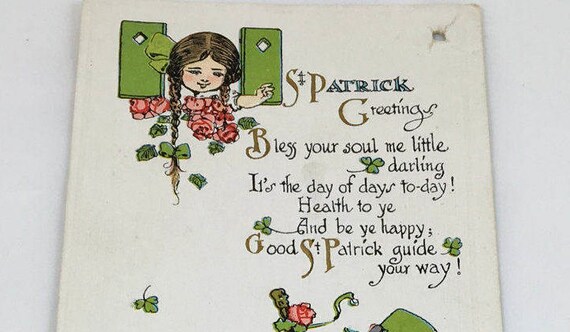 St. Patrick
Greetings
Bless your soul me little
darling
It's the day of days to-day!
Health to ye
And be ye happy;
Good St. Patrick guide
your way!